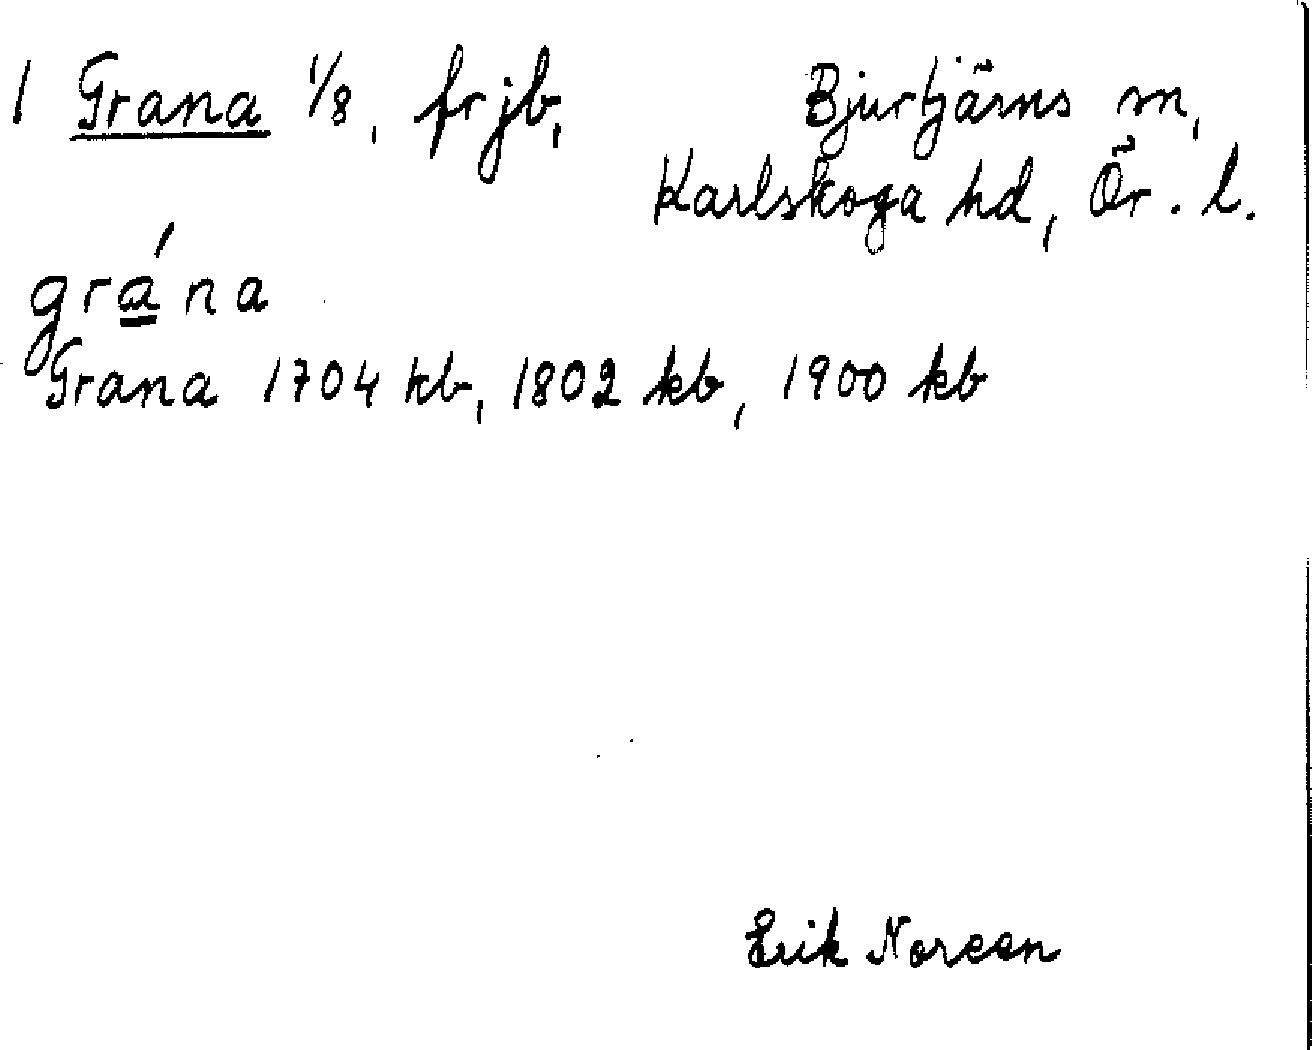 1 Grana 1/8, frjb, Bjurtjärns m,
Karlskoga hd, Ör. l.
grána
Grana 1704 kb, 1802 kb, 1900 kb
Erik Noreen